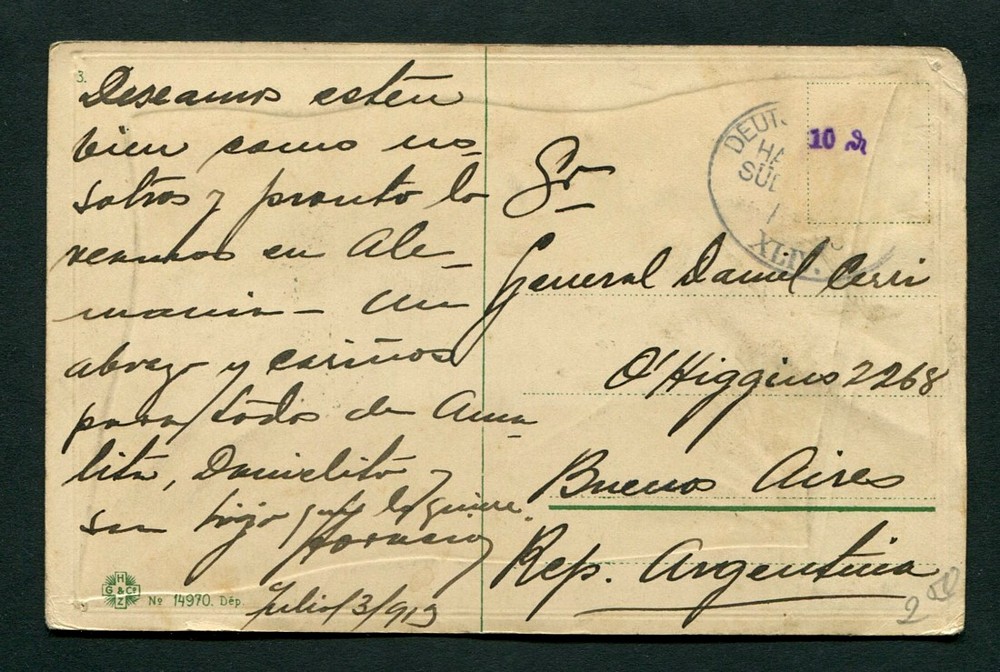 3.
Deseamos estén
bien como no-
sotros y pronto lo
veamos en Ale-
mania - Un
abrazo y cariños
para todos de Ama-
lita, Danielito y
su hijo que lo quiere
Horacio
Julio/3/913
H
G & Co
Z
No 14970. Dép.
DEUT
HA
SÜD
XLIV.
10
Sr
General Daniel Cerri
O'Higgins 2268
Buenos Aires
Rep. Argentina
2